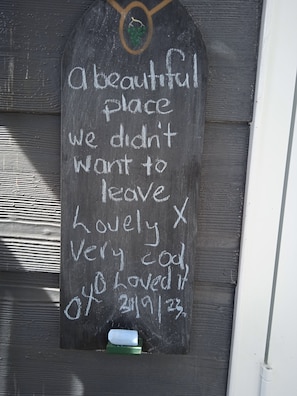 a beautiful
place
we didn't
want to
leave
Lovely X
Very cool
OXO Loved it
20/9/23